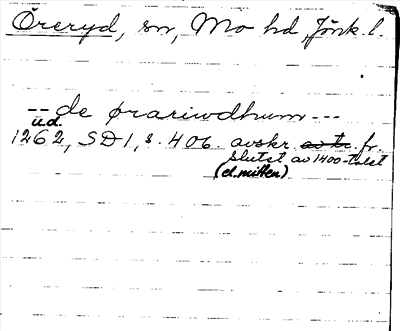 Öreryd, sn, Mo hd, Jönk. l.
--- de ørariwdhum ---
u.d.
1262, SD 1, s. 406. avskr. avtr. fr.
slutet av 1400-talet
(el. mitten)